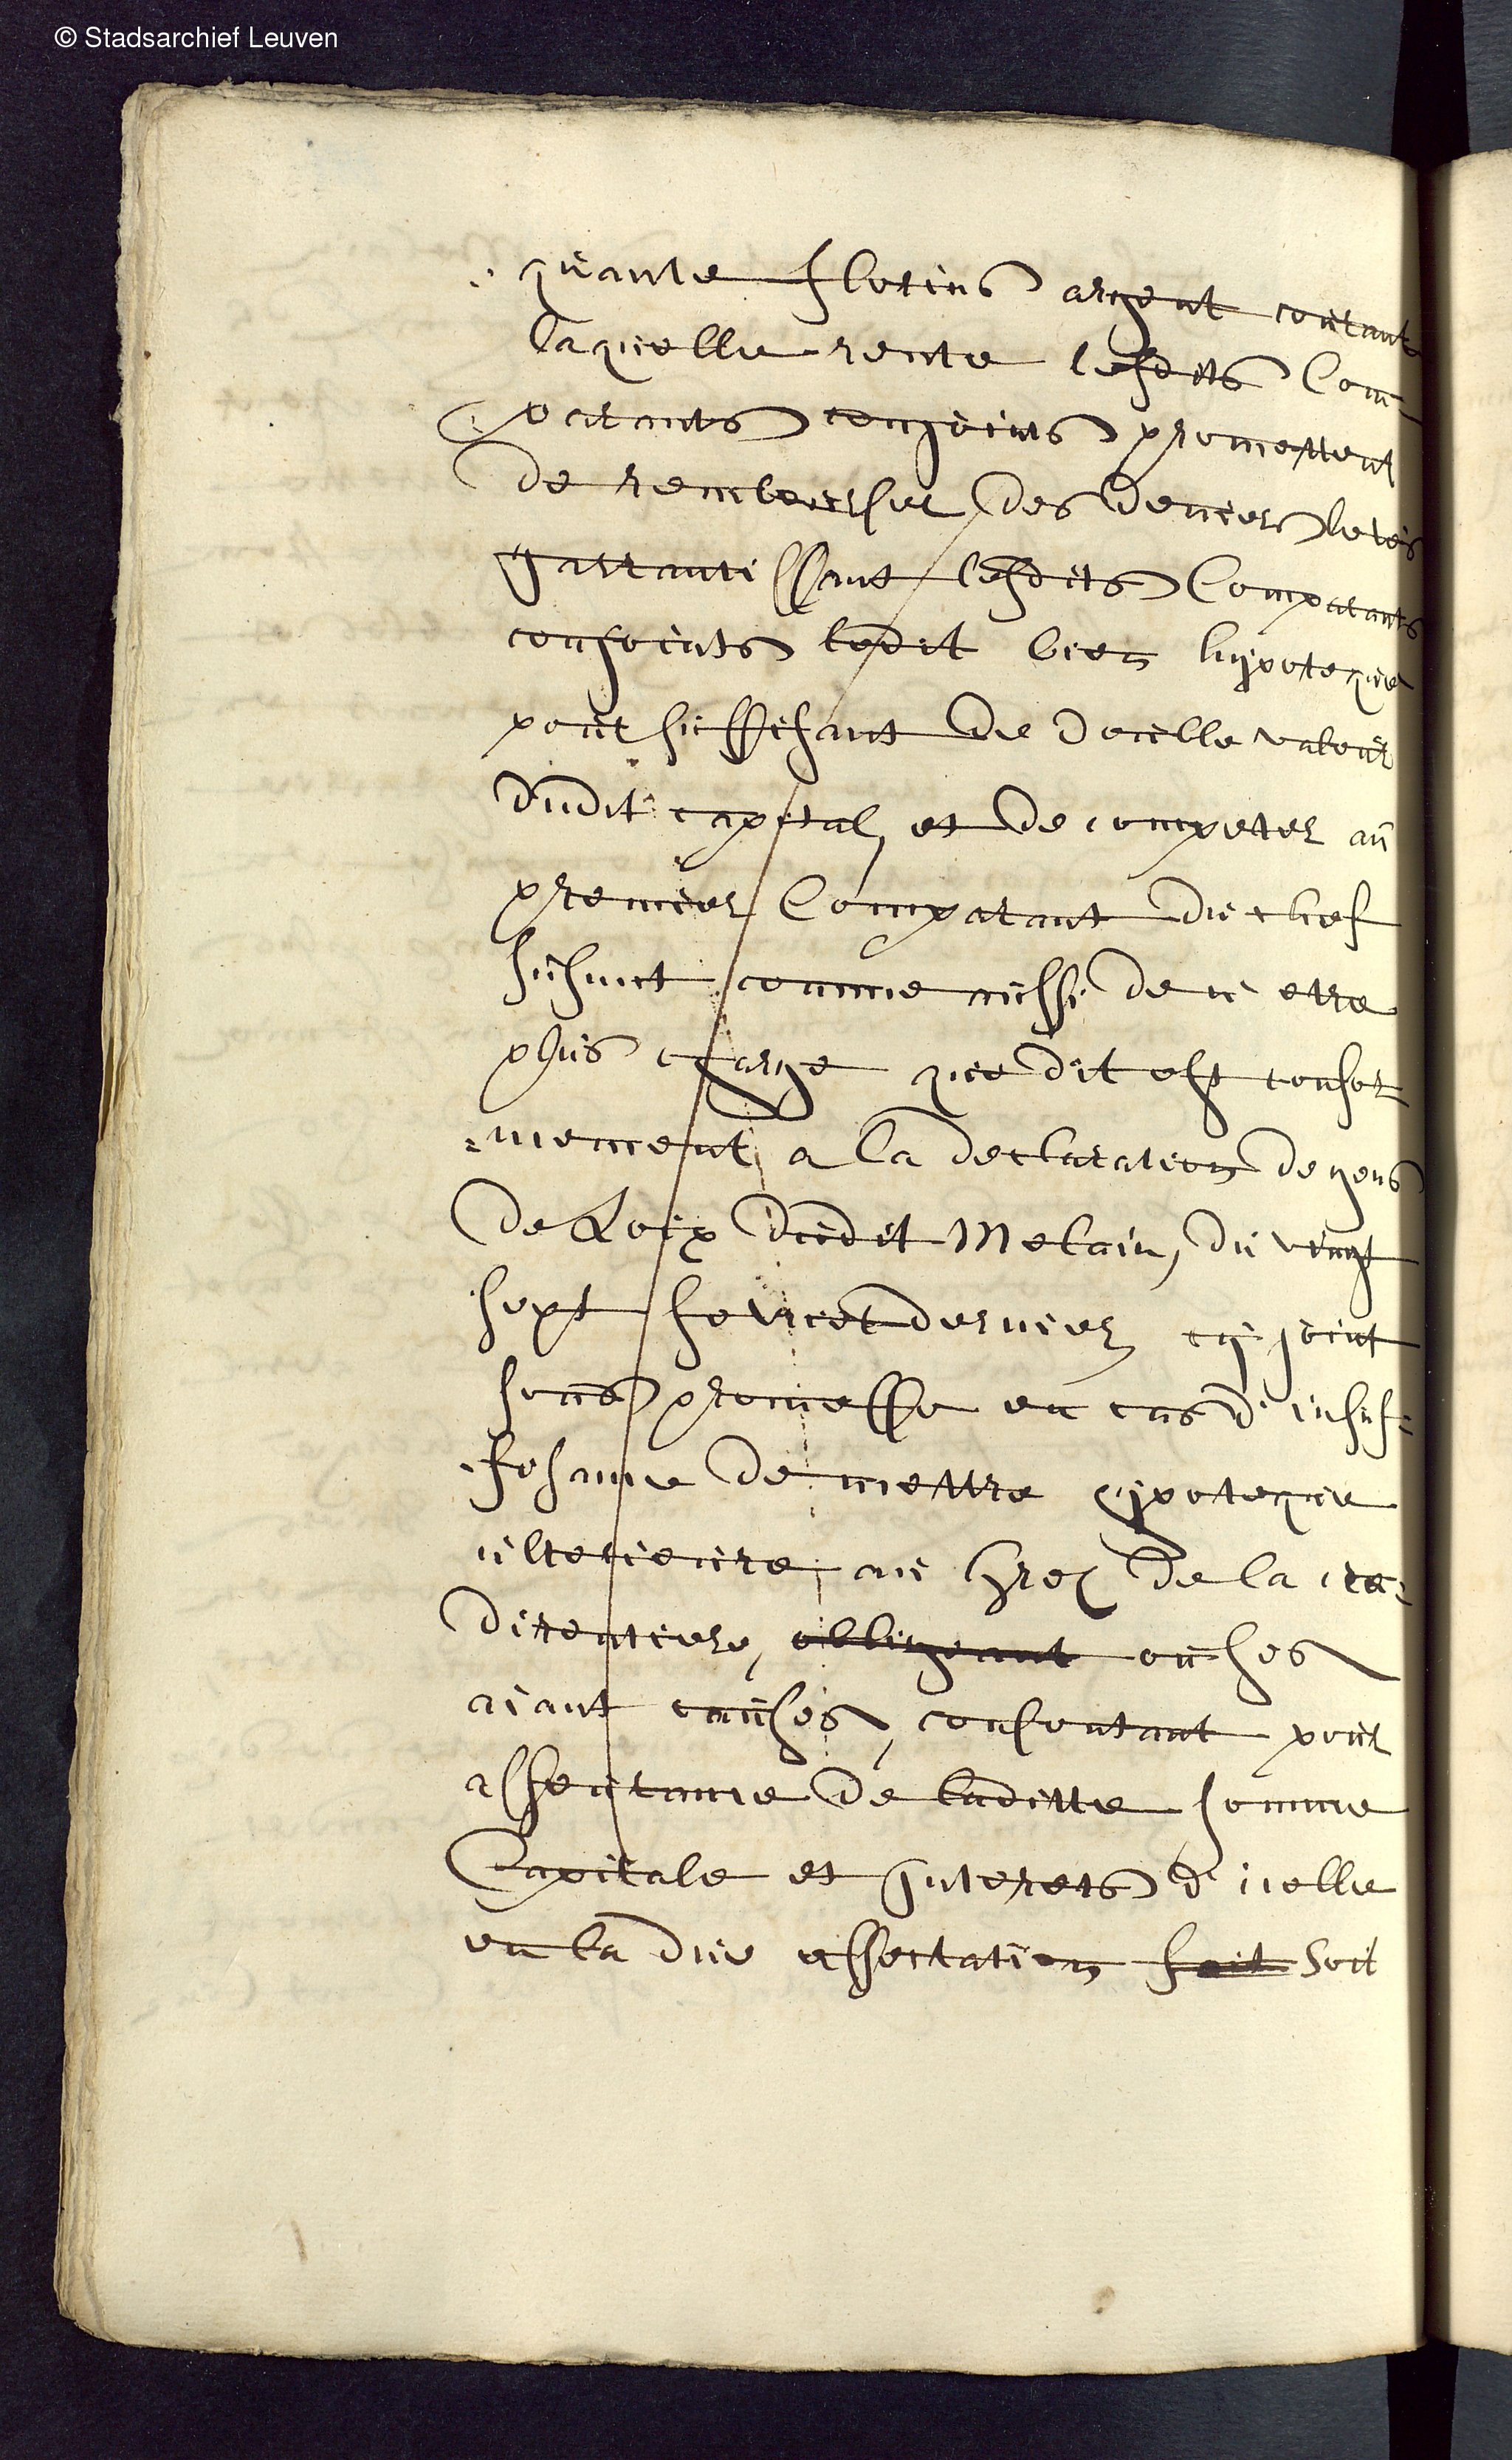 © Stadsarchief Leuven
quante florins argent contant
laquelle rente lesdits Com-
parants conjoints promettent
de rembourser des deniers levés
garrantissant lesdits Comparants
conjoints ledit bien hypoteque
pour suffisant de double valeur
dudit capital, et de competer au
premier Comparant du chef
susdit comme aussi de n'etre
plus chargé que dit est confor
=mement a la declaration de gens
de Loix dudit Melain, du vingt
sept fevrier dernier cy joint
sous promesse en cas d'insuf=
fisance de mettre hypoteque
ulterieure au grez de la cre=
direntiere, obligeant ou ses
aiant causes, consentant pour
asseurance de laditte somme
Capitale et Interets d'icelle
en la due affectation fait Soit